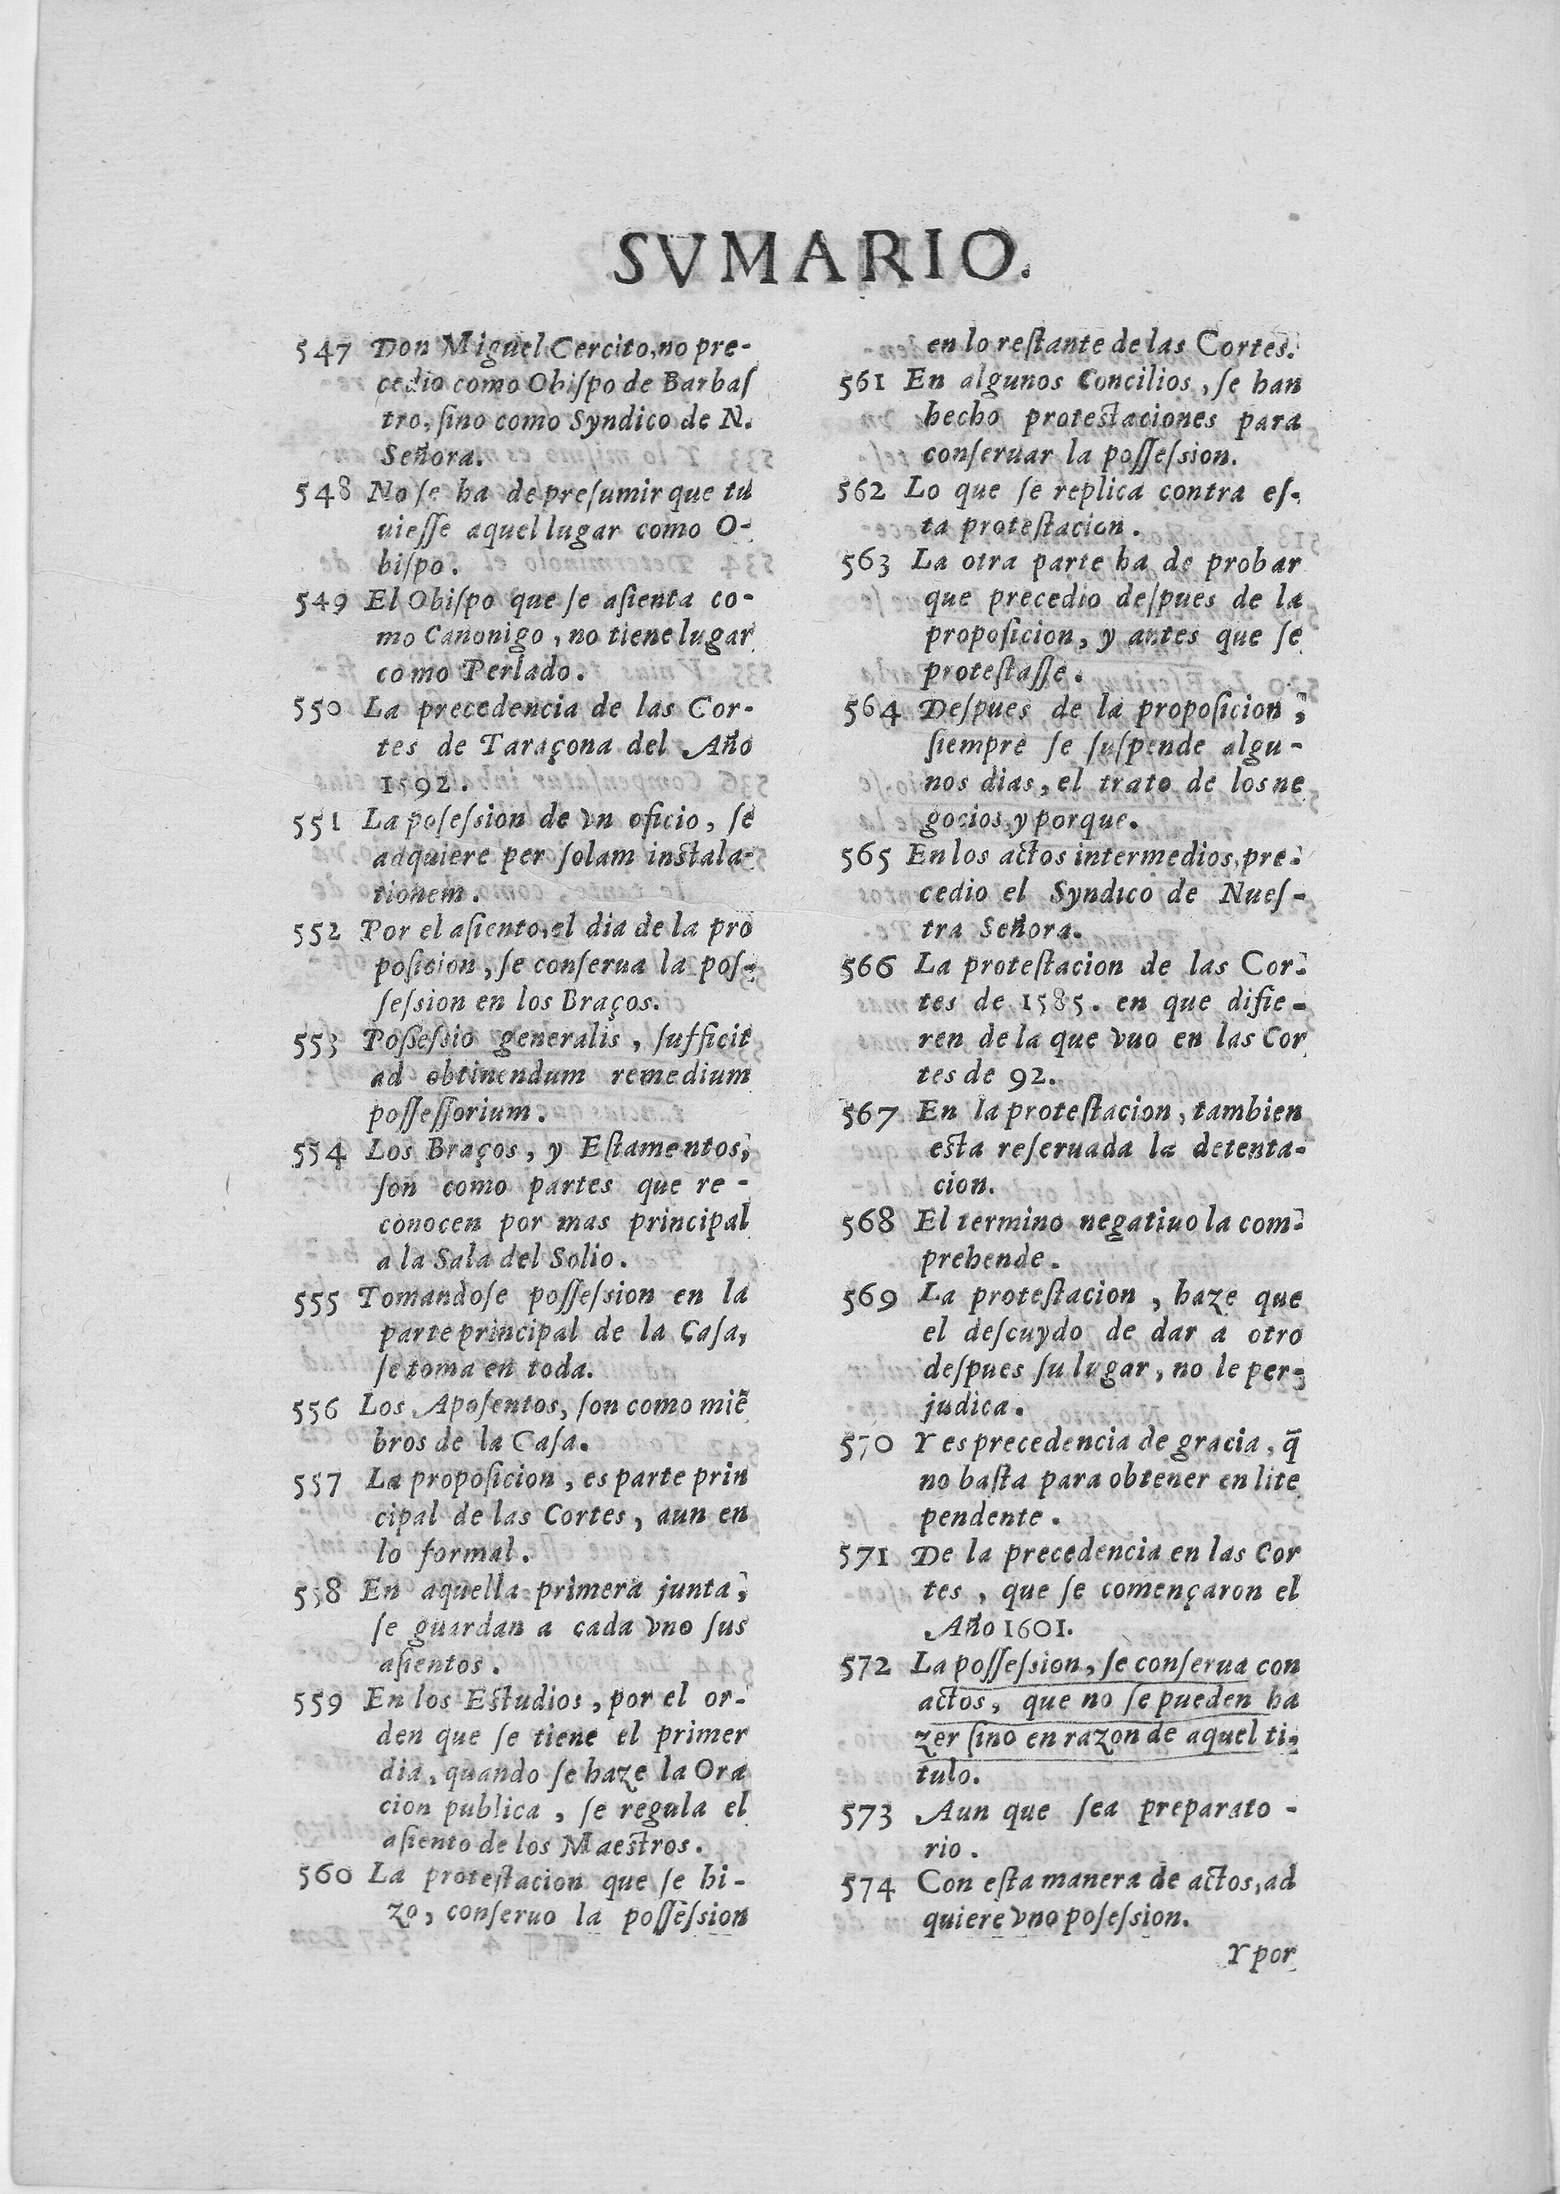 SVMARIO.
547 Don Miguel Cercito, no pre-
cedio como Obiſpo de Barbaſ
tro, ſino como Syndico de N.
Señora.
548 No ſe ha de preſumir que tu
uieſſe aquel lugar como O-
biſpo.
549 El Obiſpo que ſe aſienta co-
mo Canonigo, no tiene lugar
como Perlado.
550 La precedencia de las Cor-
tes de Taraçona del Año
1592.
551 La poſeſsion de vn oficio, ſe
adquiere per ſolam inſtala-
tionem.
552 Por el aſiento, el dia de la pro
poſicion, ſe conſerua la poſ-
ſeſsion en los Braços.
553 Poſſeſsio generalis, ſufficit
ad obtinendum remedium
poſſeſſorium.
554 Los Braços, y Eſtamentos,
ſon como partes que re-
conocen por mas principal
a la Sala del Solio.
555 Tomandoſe poſſeſsion en la
parte principal de la Caſa,
ſe toma en toda.
556 Los Apoſentos, ſon como miẽ
bros de la Caſa.
557 La propoſicion, es parte prin
cipal de las Cortes, aun en
lo formal.
558 En aquella primera junta,
ſe guardan a cada vno ſus
aſientos.
559 En los Eſtudios, por el or-
den que ſe tiene el primer
dia, quando ſe haze la Ora
cion publica, ſe regula el
aſiento de los Maeſtros.
560 La proteſtacion que ſe hi-
zo, conſeruo la poſſeſsion
en lo reſtante de las Cortes.
561 En algunos Concilios, ſe han
hecho proteſtaciones para
conſeruar la poſſeſsion.
562 Lo que ſe replica contra eſ-
ta proteſtacion.
563 La otra parte ha de probar
que precedio deſpues de la
propoſicion, y antes que ſe
proteſtaſſe.
564 Deſpues de la propoſicion,
ſiempre ſe ſuſpende algu-
nos dias, el trato de los ne
gocios, y porque.
565 En los actos intermedios, pre-
cedio el Syndico de Nueſ-
tra Señora.
566 La proteſtacion de las Cor-
tes de 1585. en que difie-
ren de la que vuo en las Cor
tes de 92.
567 En la proteſtacion, tambien
eſta reſeruada la detenta-
cion.
568 El termino negatiuo la com-
prehende.
569 La proteſtacion, haze que
el deſcuydo de dar a otro
deſpues ſu lugar, no le per-
judica.
570 Y es precedencia de gracia, q̃
no baſta para obtener en lite
pendente.
571 De la precedencia en las Cor
tes, que ſe començaron el
Año 1601.
572 La poſſeſsion, ſe conſerua con
actos, que no ſe pueden ha
zer ſino en razon de aquel ti-
tulo.
573 Aun que ſea preparato-
rio.
574 Con eſta manera de actos, ad
quiere vno poſeſsion.
Y por